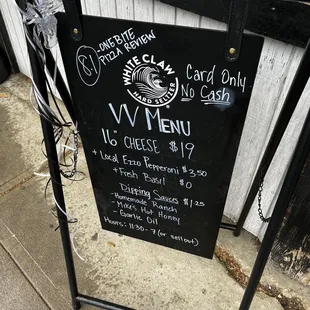 8.1 - ONE BITE
PIZZA REVIEW
WHITE CLAW
HARD SELTZER
Card Only
No Cash
VV MENU
16" CHEESE $19
+ Local Ezzo Pepperoni $3.50
+ Fresh Basil $0
Dipping Sauces $1.25
- Homemade Ranch
- Mike's Hot Honey
- Garlic Oil
Hours: 11:30 - 7 (or sellout)